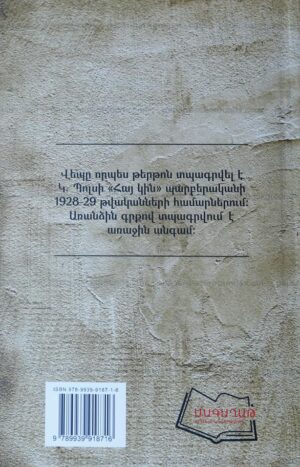 Վեպը որպես թերթոն տպագրվել է
Կ. Պոլսի «Հայ կին» պարբերականի
1928-29 թվականների համարներում:
Առանձին գրքով տպագրվում է
առաջին անգամ:
ISBN 978-9939-9187-1-6
9 789939 918716
ՄԱԳԱՂԱԹ